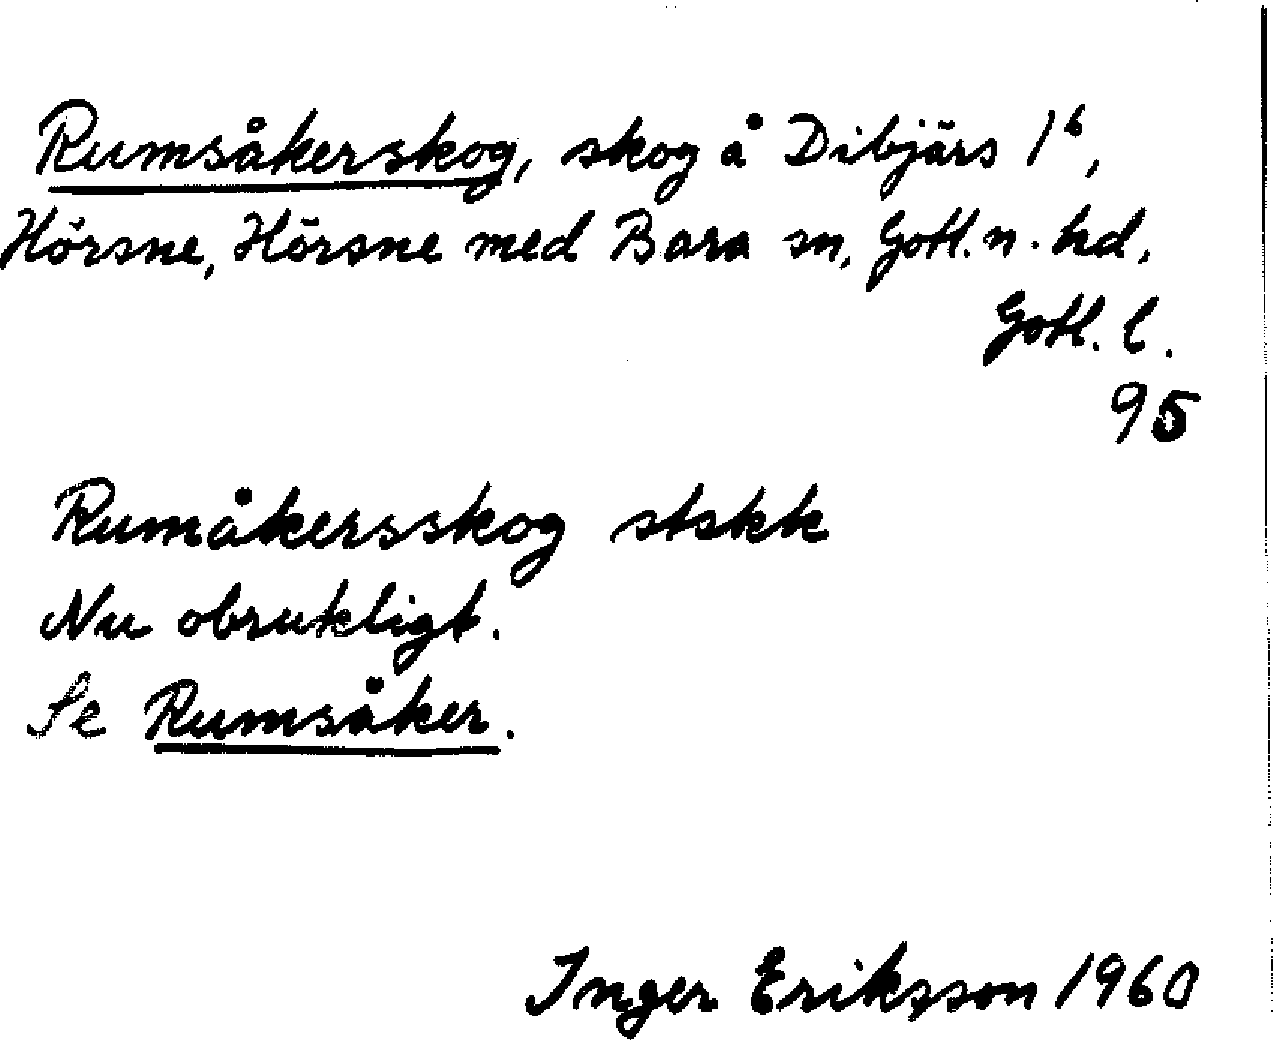 Rumsåkerskog, skog å Dibjärs 1ᵇ,
Hörsne, Hörsne med Bara sn, Gotl. n. hd,
Gotl. l.
95
Rumåkersskog stskk
Nu obrukligt.
Se Rumsåker.
Inger Eriksson 1960